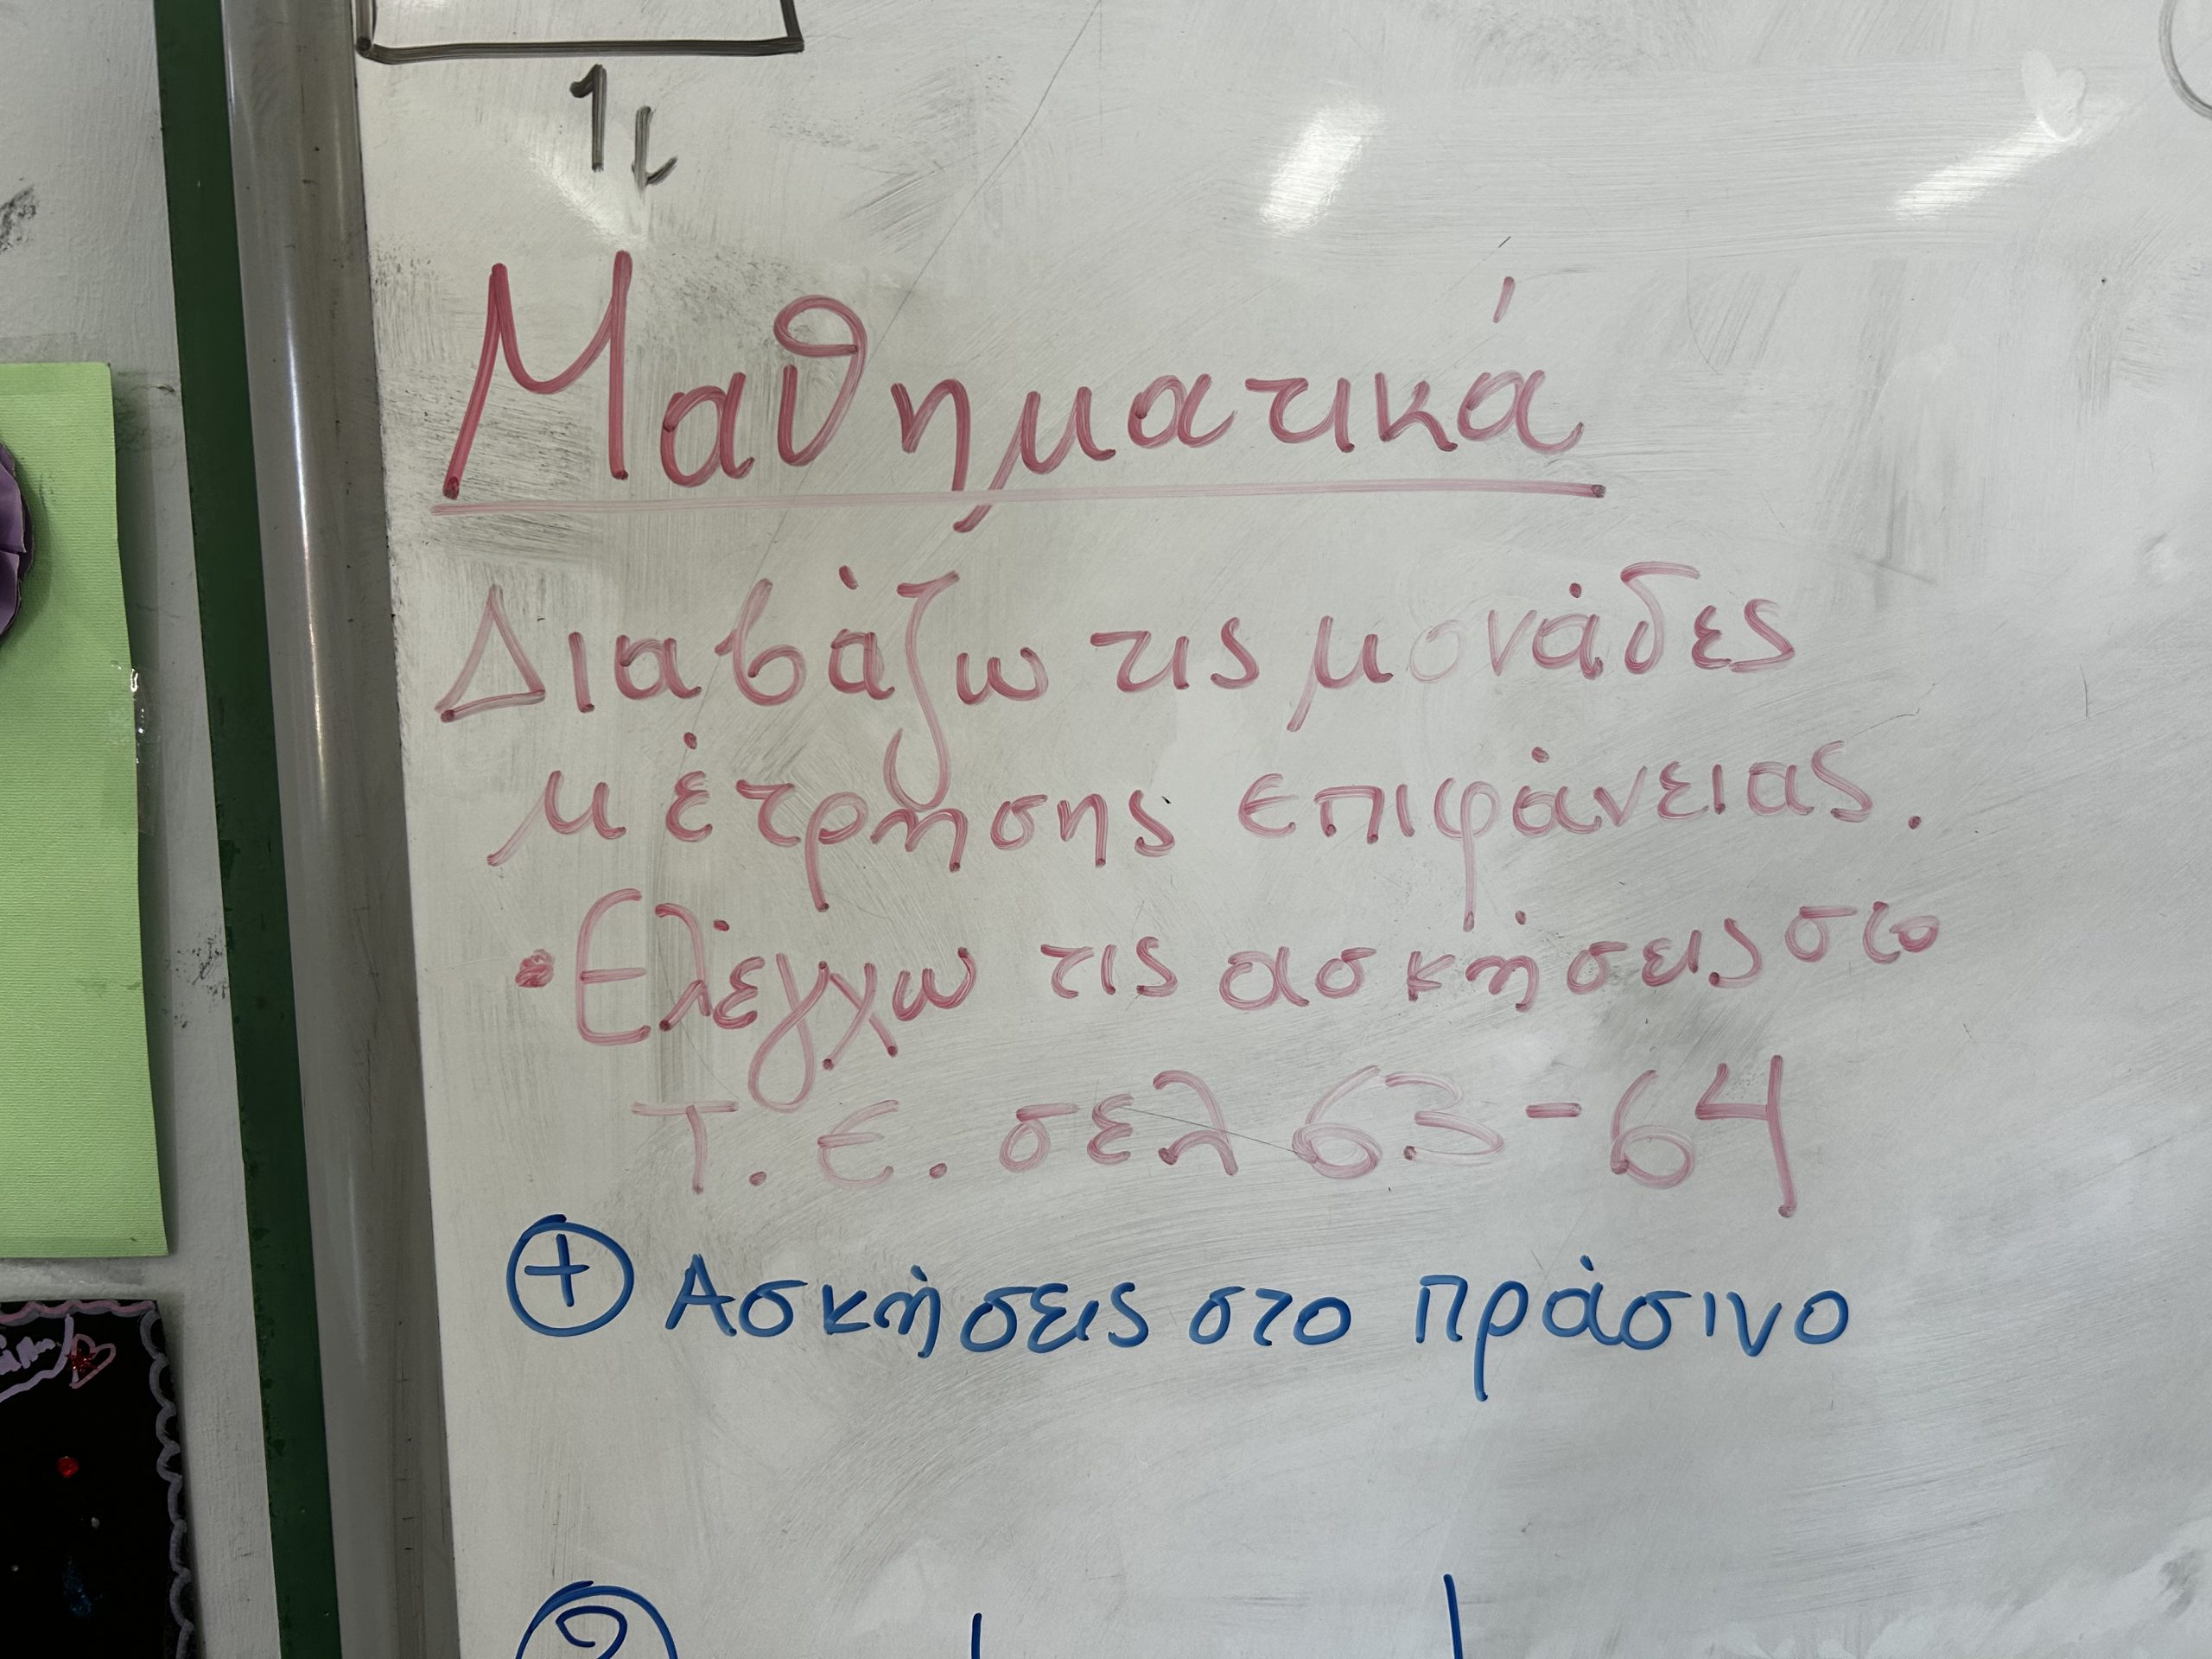 Μαθηματικά
Διαβάζω τις μονάδες
μέτρησης επιφάνειας.
• Ελέγχω τις ασκήσεις στο
Τ.Ε. σελ 63-64
+ Ασκήσεις στο πράσινο